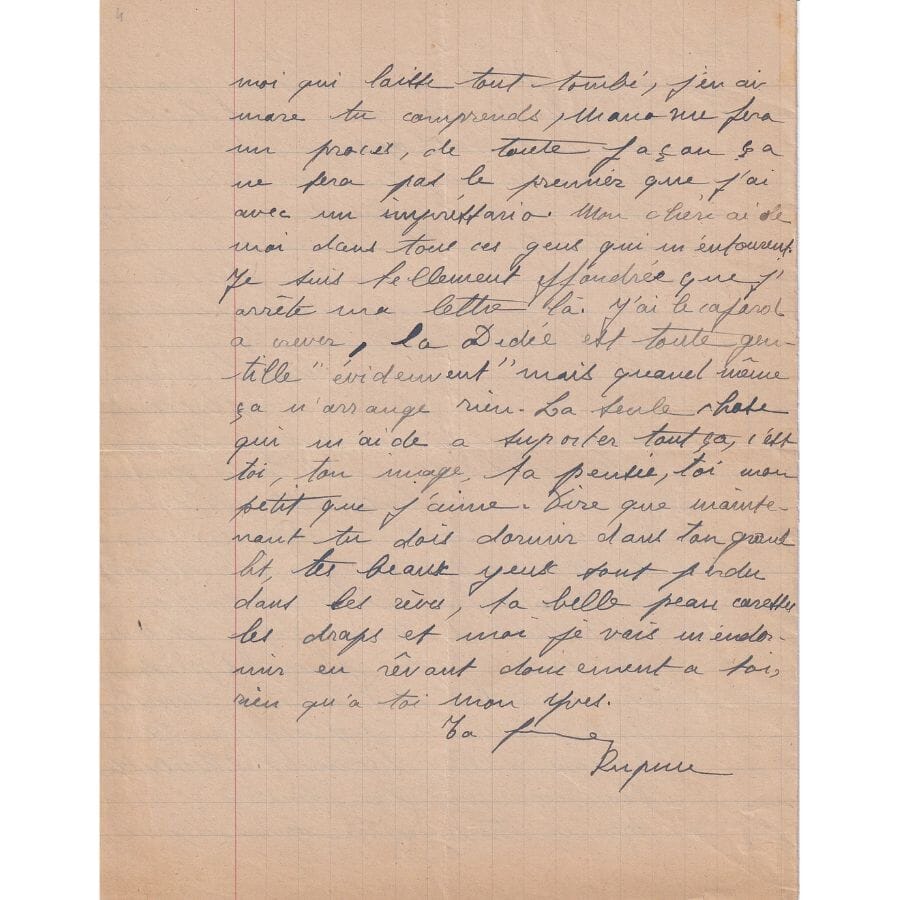 4
moi qui laisse tout tombé, j'en ai
mare tu comprends, Mano me fera
un procès, de toute façon ça
ne sera pas le premier que j'ai
avec un impréssario. Mon chéri aide
moi dans tous ces gens qui m'entourent.
Je suis tellement éffondrée que j'
arrête ma lettre là. J'ai le cafard
a crever, la Dédée est toute gen-
tille "évidemment" mais quand même
ça n'arrange rien. La seule chose
qui m'aide a suporter tout ça, c'est
toi, ton image, ta pensée, toi mon
petit que j'aime. Dire que mainte-
nant tu dois dormir dans ton grand
lit, tes beaux yeux sont perdu
dans les rêves, ta belle peau caresse
les draps et moi je vais m'endor-
mir en rêvant doucement a toi,
rien qu'a toi mon Yves.
Ta femme